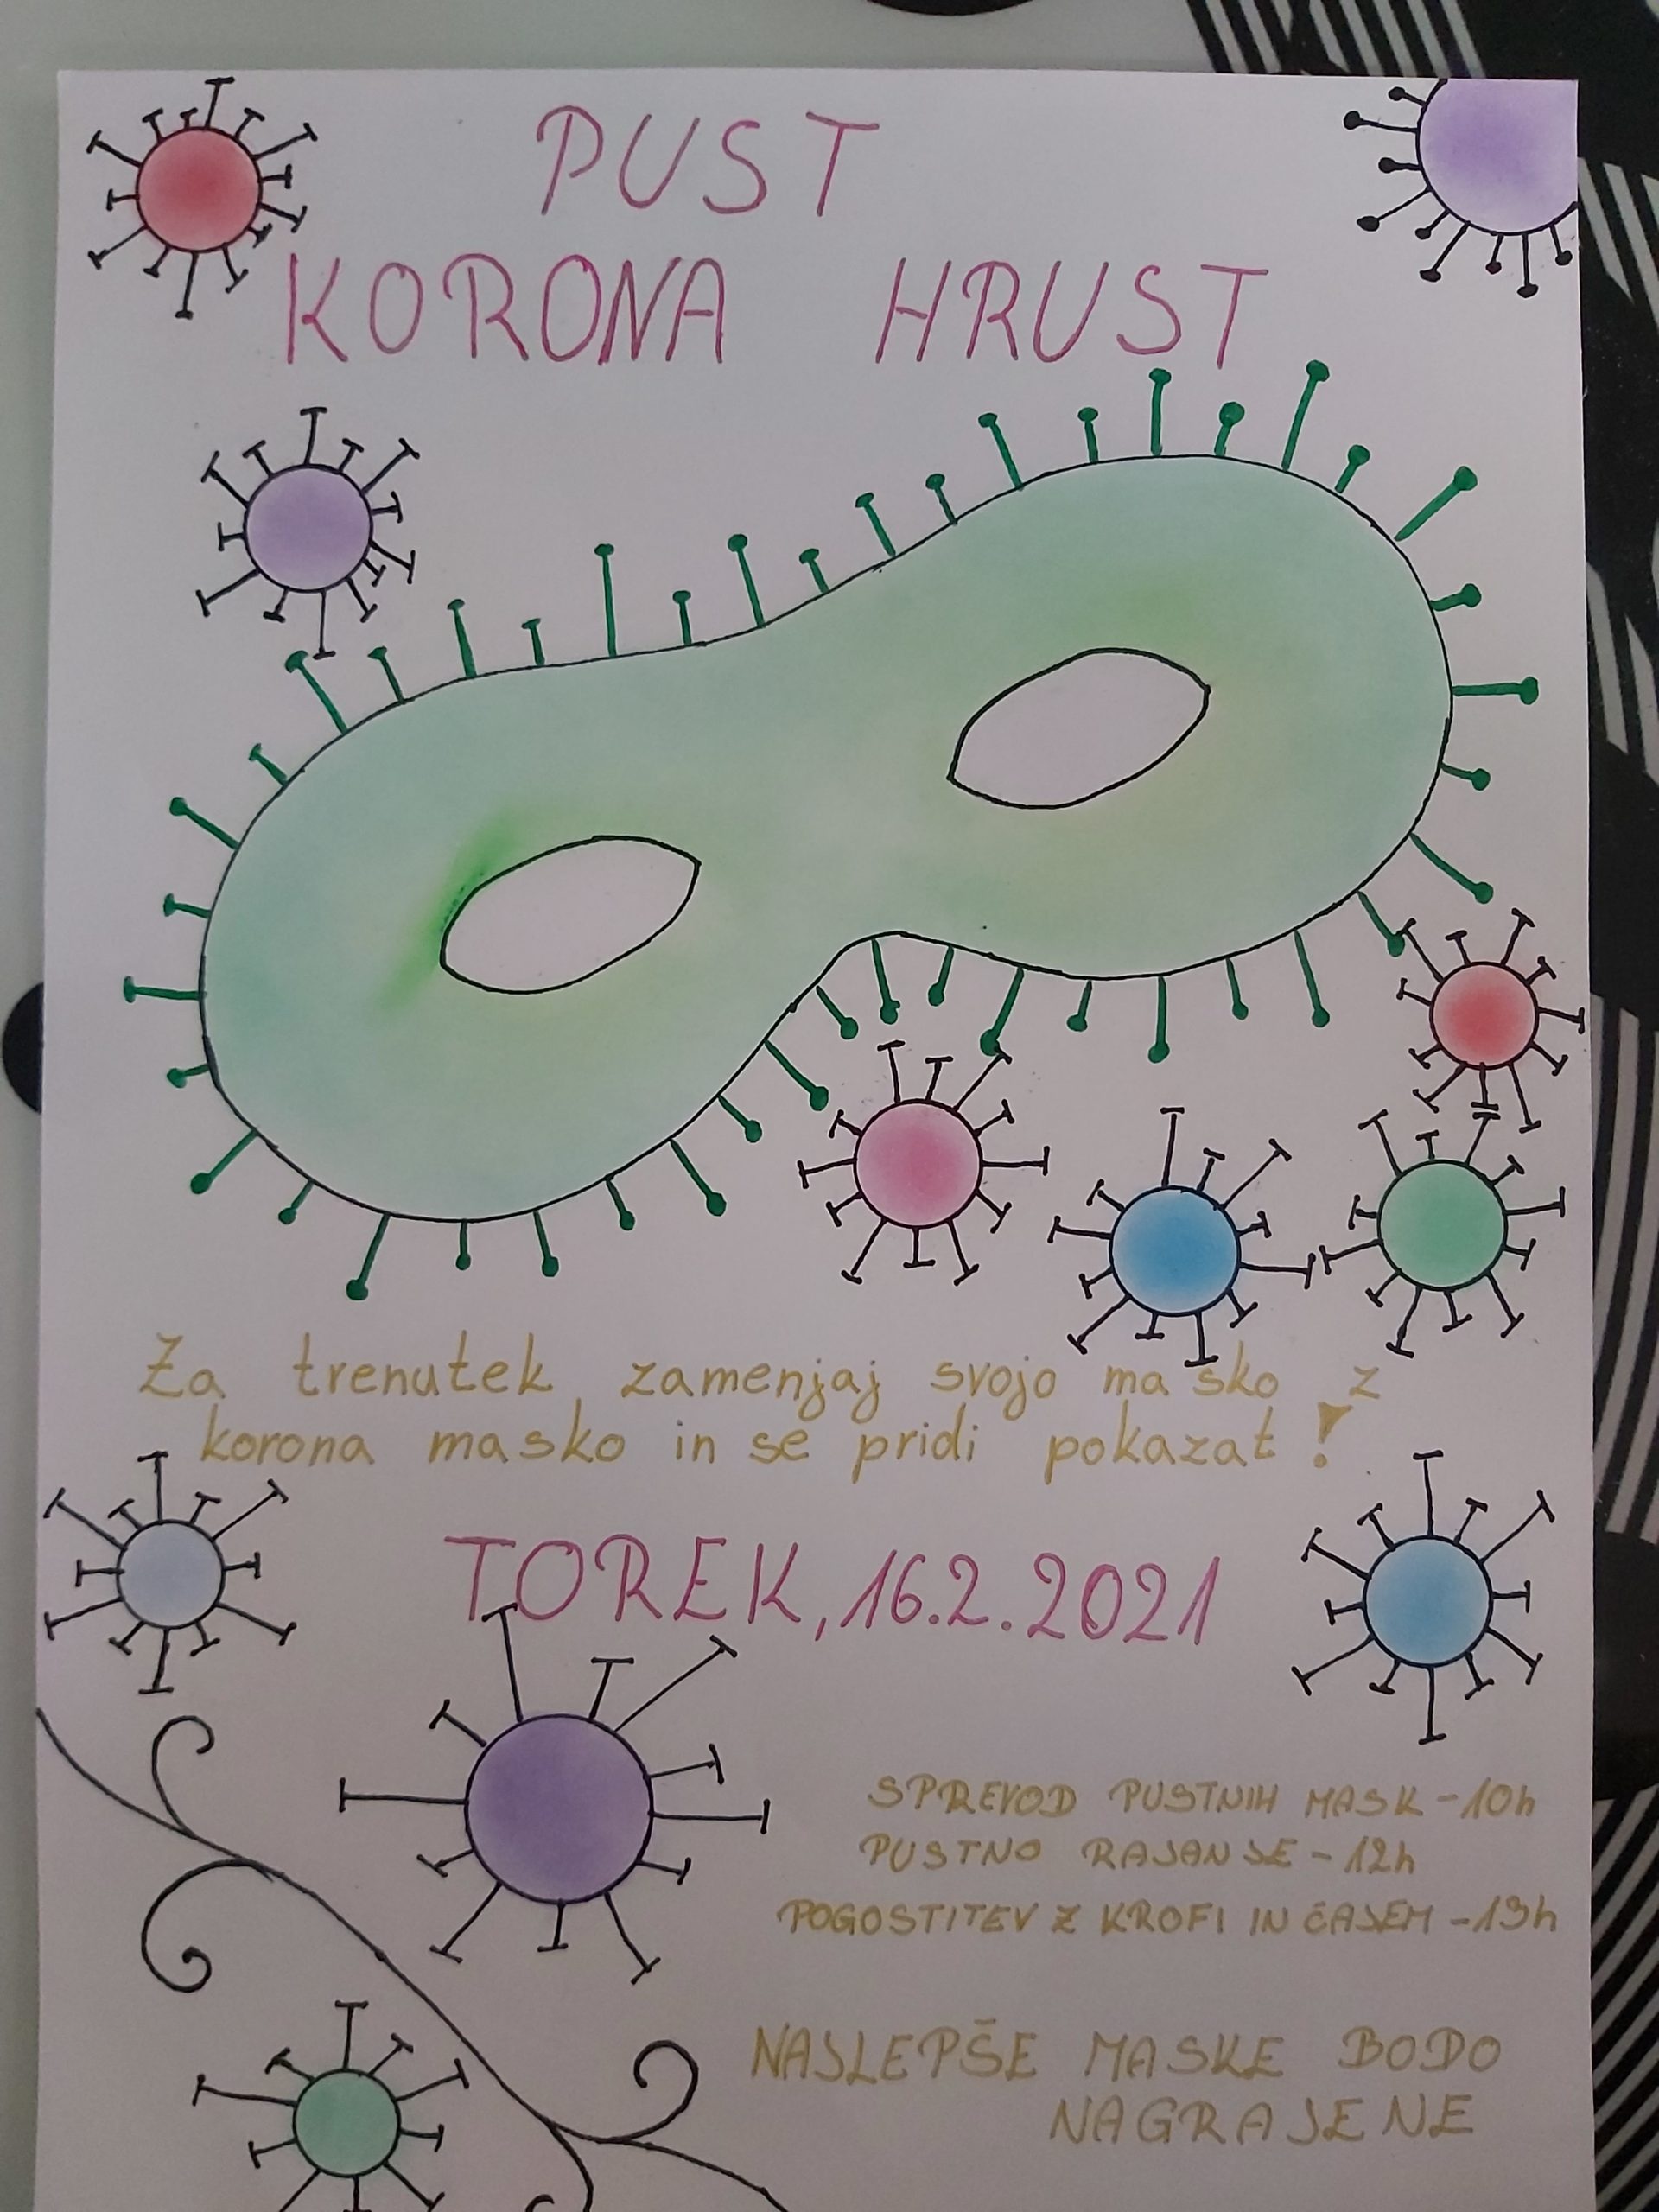 PUST
KORONA HRUST
Za trenutek zamenjaj svojo masko z
korona masko in se pridi pokazat!
TOREK, 16.2.2021
SPREVOD PUSTNIH MASK - 10h
PUSTNO RAJANJE - 12h
POGOSTITEV Z KROFI IN ČAJEM - 13h
NAJLEPŠE MASKE BODO
NAGRAJENE